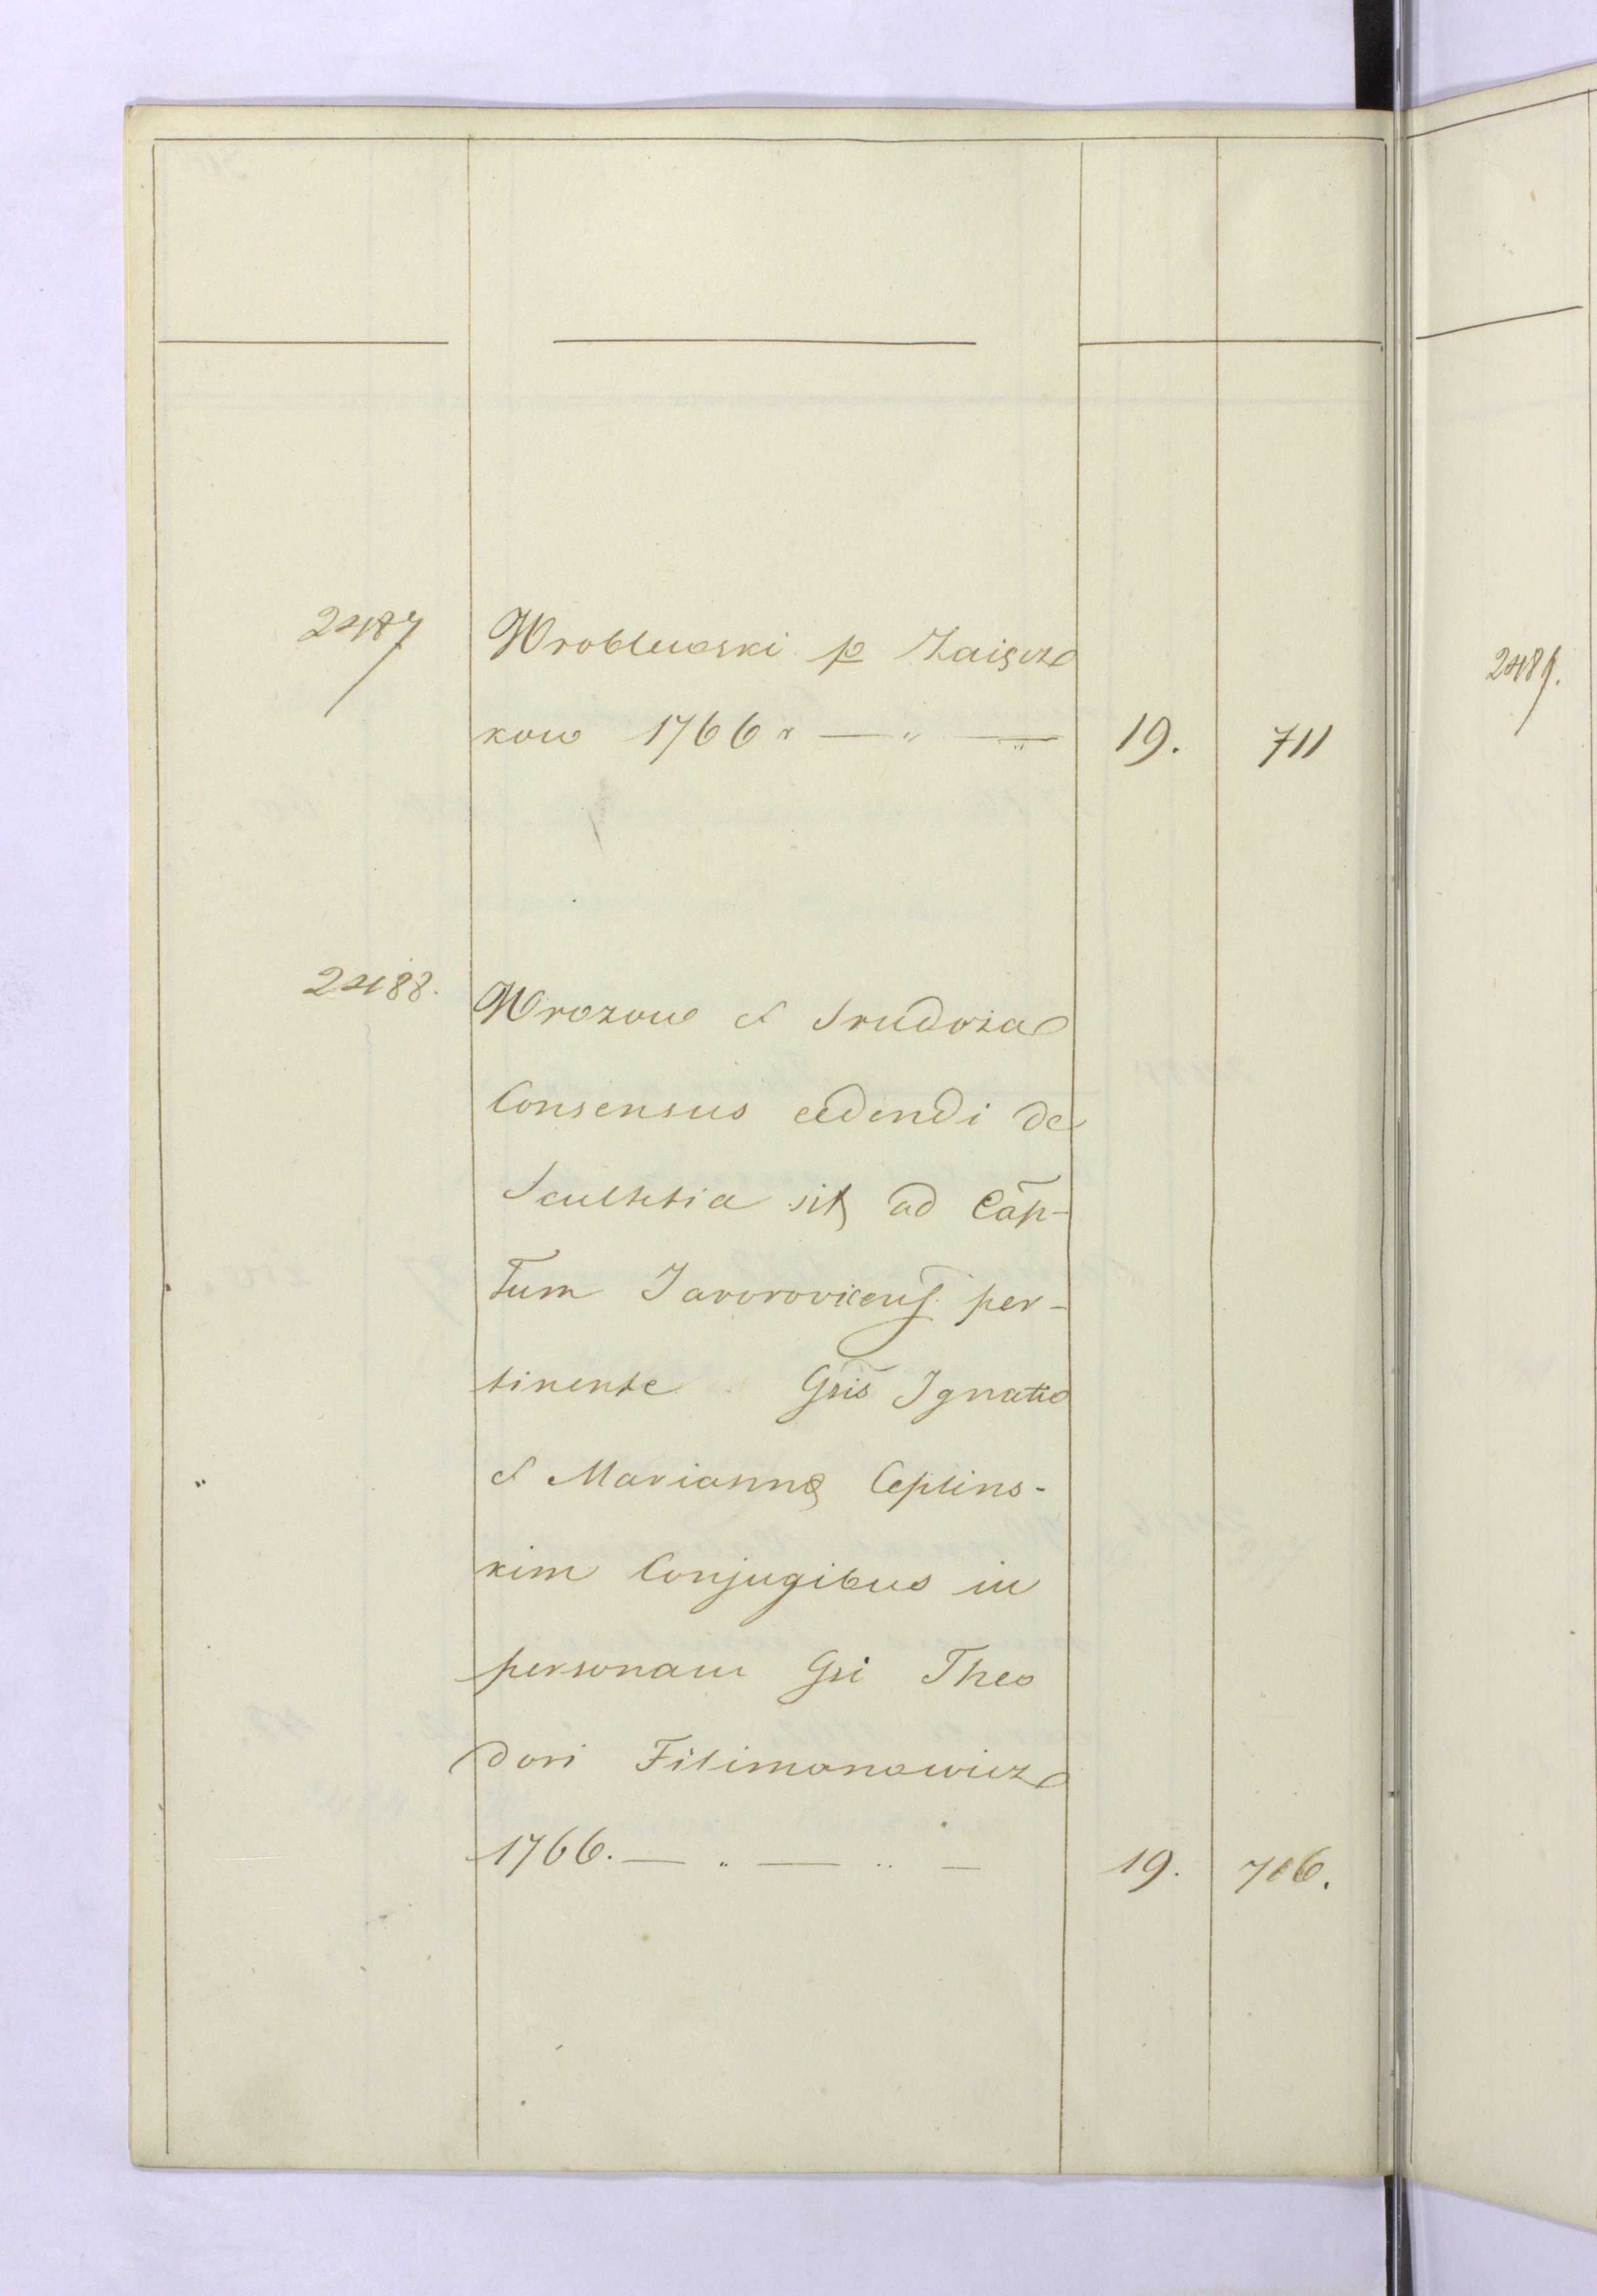 2487 Wroblewski p Zaięcz
kow 1766 r — " — " 19. 711
2488. Wrozow et Srudoza
Consensus cedendi de
Scultetia sit ad Cap-
tum Javorovicens. per-
tinente Gsis Ignatio
et Marianna Ceptins-
kim Conjugibus in
personam Gsi Theo
dori Filimonowicz
1766. — " — " — 19. 706.
2489.